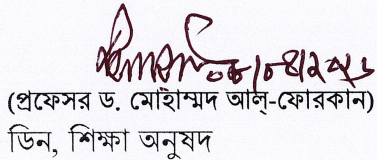 (প্রফেসর ড. মোহাম্মদ আল্-ফোরকান)
ডিন, শিক্ষা অনুষদ